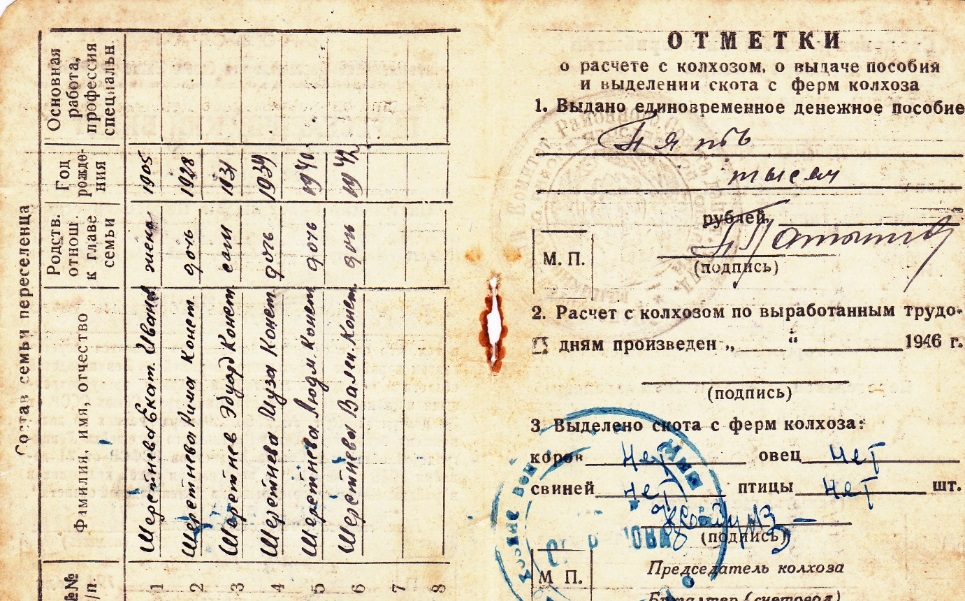 Состав семьи переселенца
№№ п/п. Фамилия, имя, отчество Родств. отнош. к главе семьи Год рождения Основная работа, профессия специальн.
1 Шерстнева Екат. Иванов жена 1905
2 Шерстнева Рима Конст. дочь 1928
3 Шерстнев Эдуард Конст сын 1931
4 Шерстнева Муза Конст дочь 1934
5 Шерстнева Людм. Конст дочь 1940
6 Шерстнева Вален. Конст дочь 1942
7
8
ОТМЕТКИ
о расчете с колхозом, о выдаче пособия
и выделении скота с ферм колхоза
1. Выдано единовременное денежное пособие
Пять
тысяч
рублей.
М. П.
(подпись)
2. Расчет с колхозом по выработанным трудо-
дням произведен „ “ 1946 г.
(подпись)
3. Выделено скота с ферм колхоза:
коров нет овец нет
свиней нет птицы нет шт.
(подпись)
М П.
Председатель колхоза
Бухгалтер (счетовод)